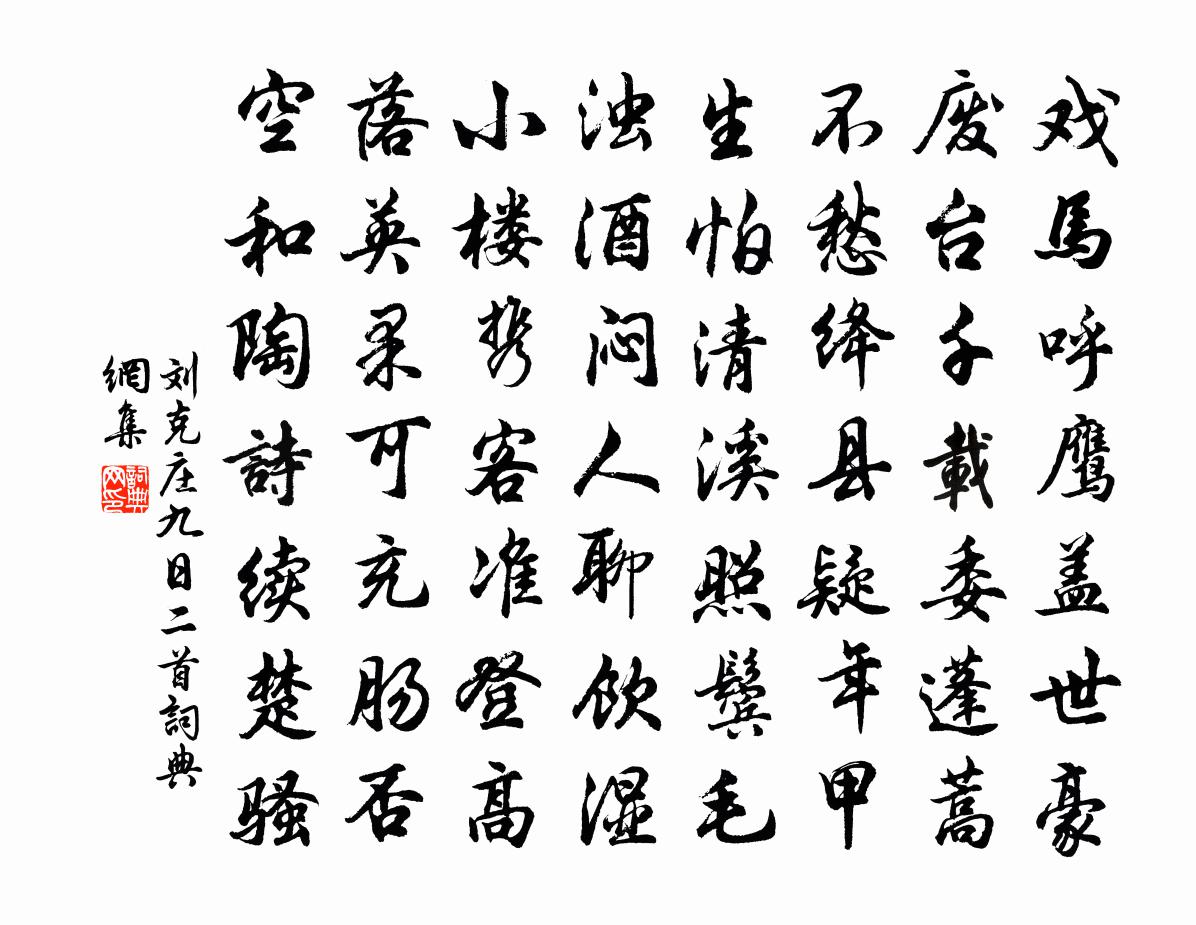 戏馬呼鹰盖世豪
废台千載委蓬蒿
不愁绛县疑年甲
生怕清溪照鬓毛
浊酒闷人聊饮湿
小楼携客准登高
落英果可充肠否
空和陶詩续楚骚
刘克庄九日二首詞典
網集
詞典
网印